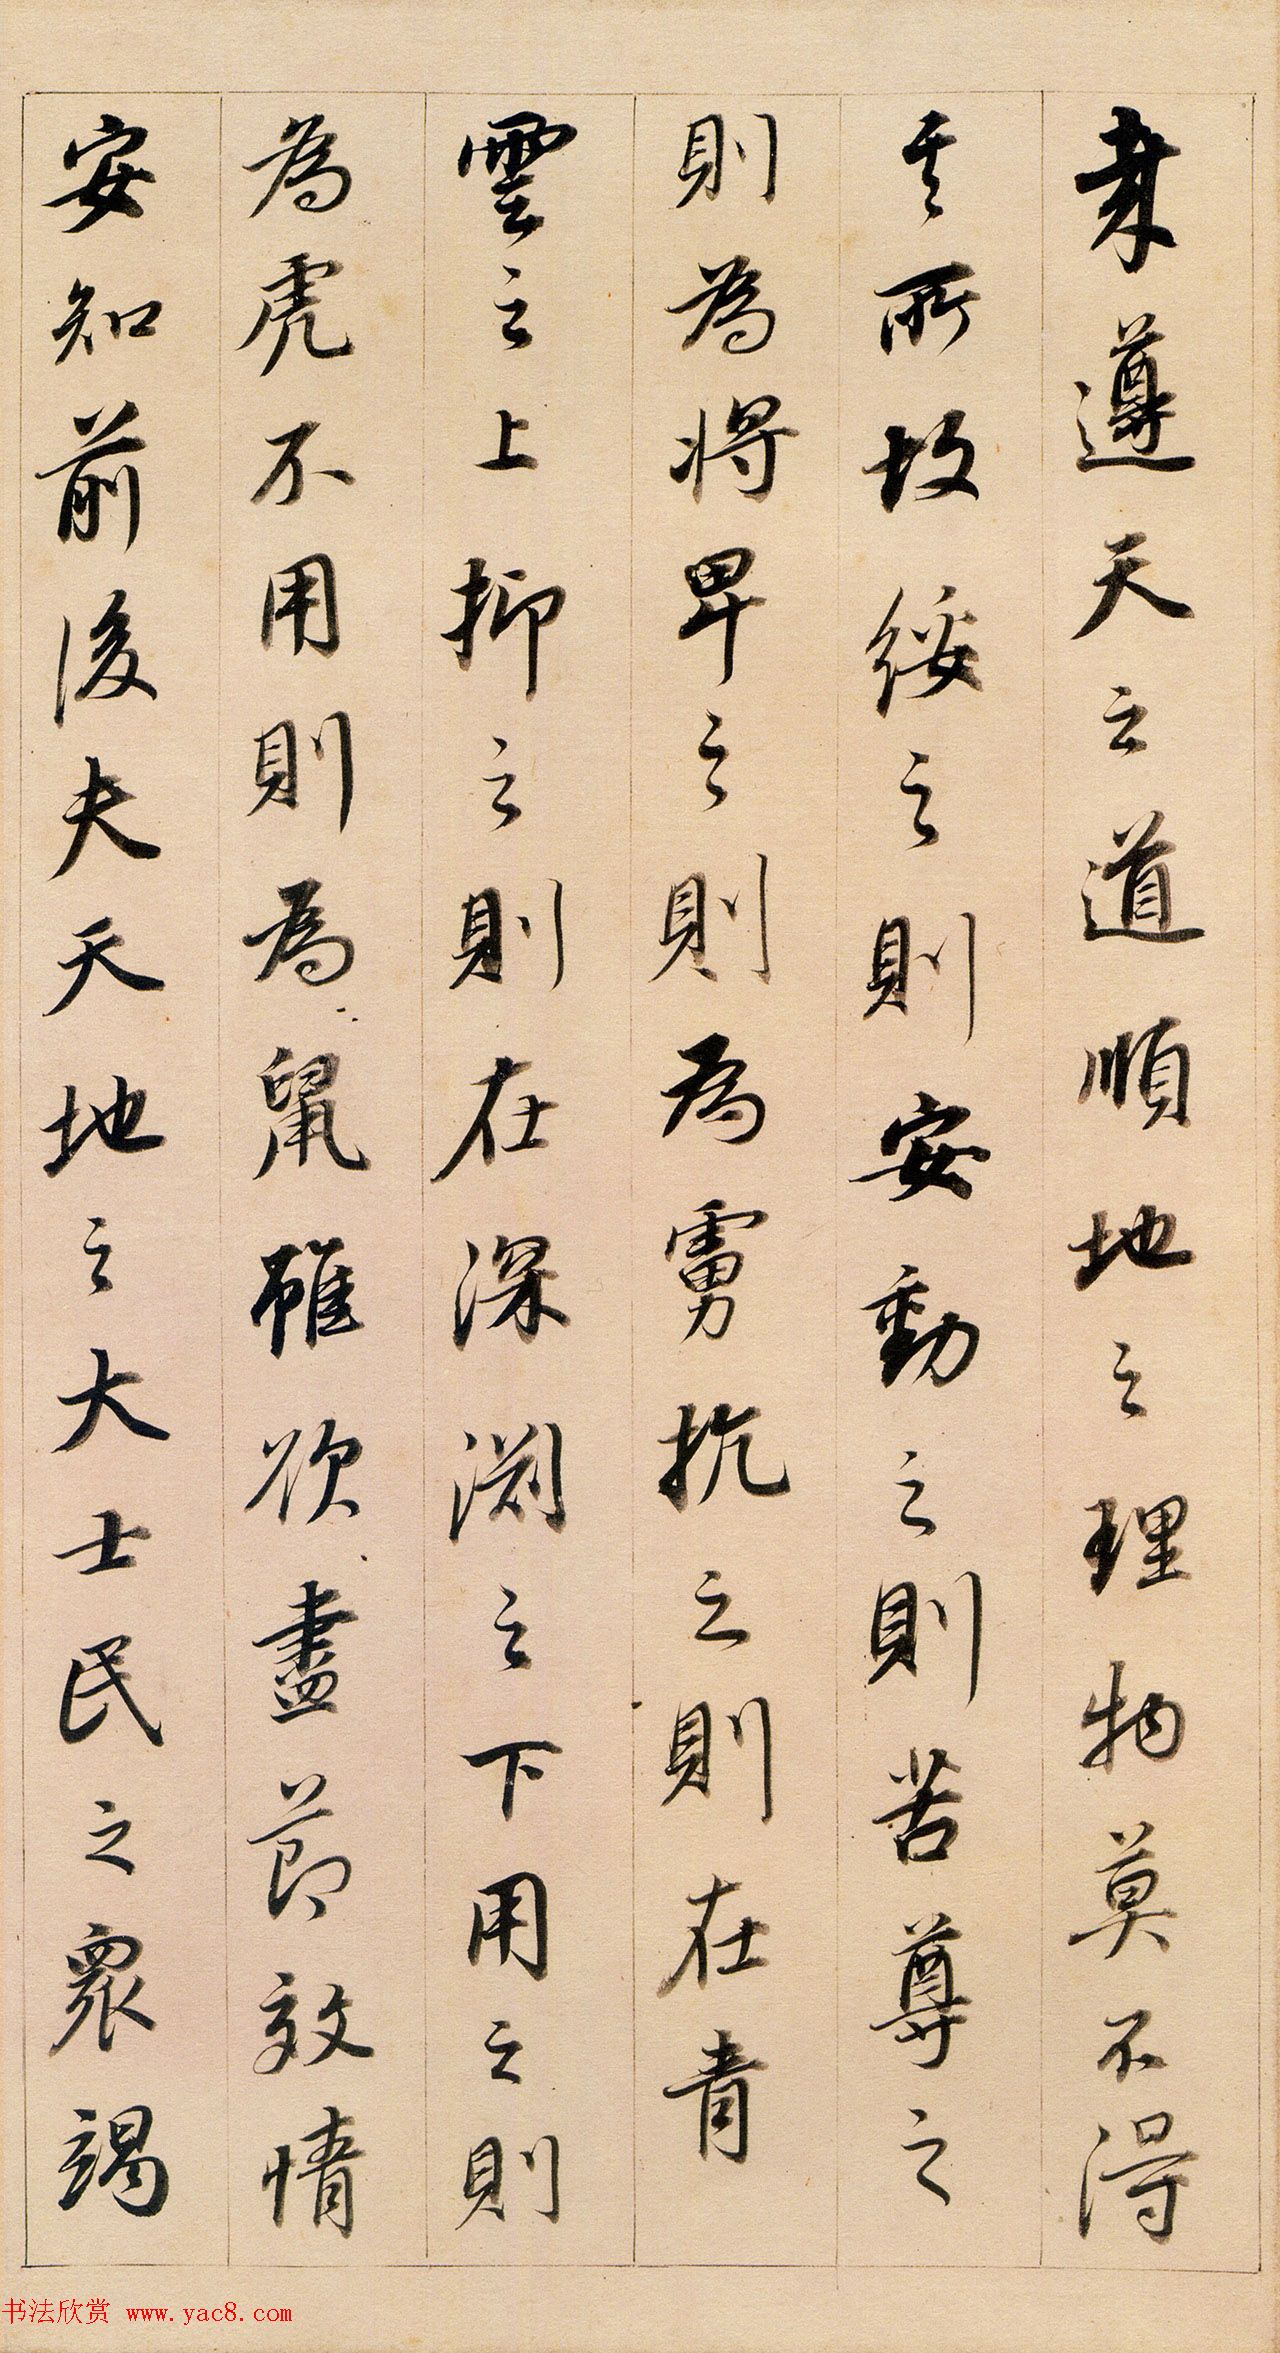 哉遵天之道順地之理物莫不得
其所故綏之則安動之則苦尊之
則為將卑之則為虜抗之則在青
雲之上抑之則在深淵之下用之則
為虎不用則為鼠雖欲盡節效情
安知前後夫天地之大士民之眾竭
书法欣赏 www.yac8.com